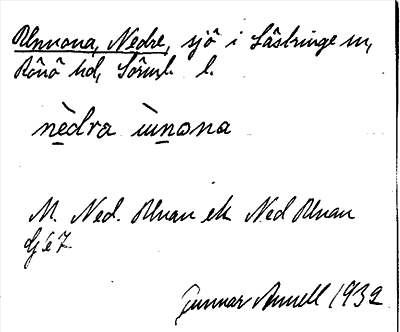 Ulnnona, Nedre, sjö i Lästringe sn,
Rönö hd, Sörml. l.
nèdra ùnona
M. Ned. Unan ek Ned Unan
Gunnar Annell 1932